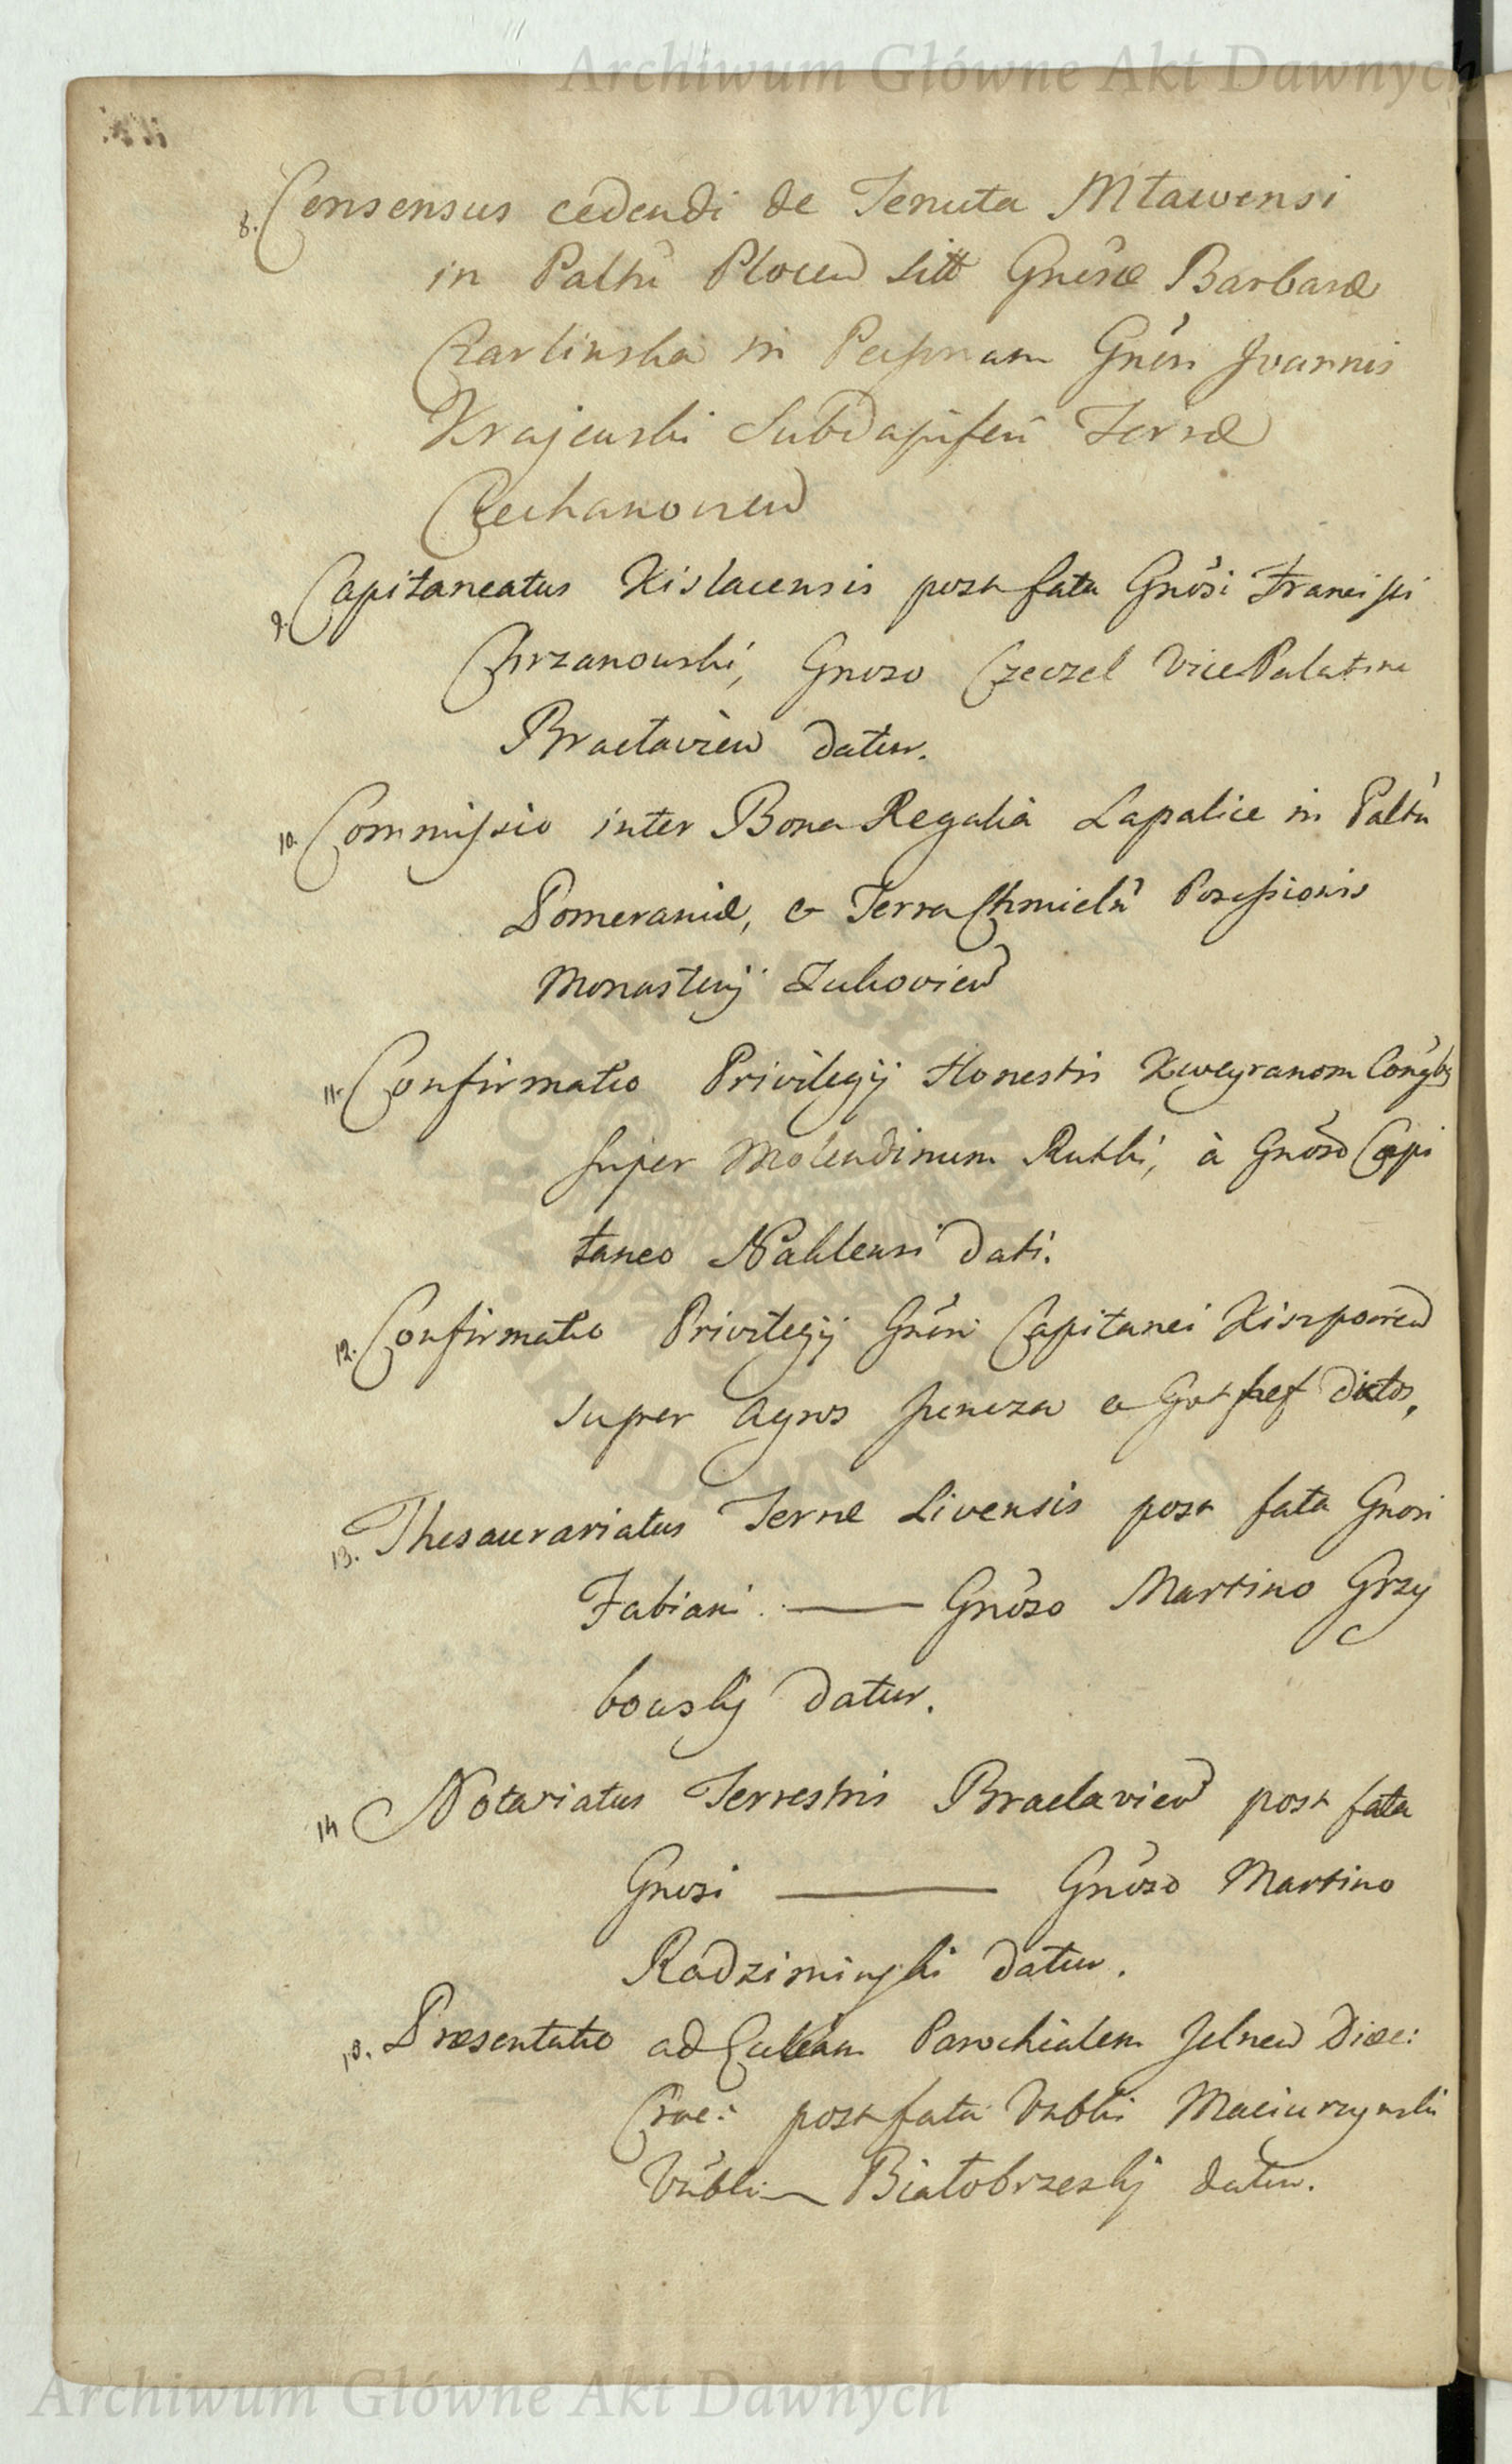 Archiwum Główne Akt Dawnych
8. Consensus cedendi de Tenuta Mławensi
in Palttu Plocen sitt Gnosæ Barbaræ
Karlinska in Personam Gnosi Joannis
Krajewski Subdapiferi Terræ
Ciechanovien
9. Capitaneatus Kislacensis post fata Gnosi Francisci
Chrzanowski, Gnoso Czeczel Vice Palatino
Braclavien datur.
10. Commissio inter Bona Regalia Lapalice in Palttu
Pomeraniæ, & Terra Chmielń Possessionis
Monasterij Zukovien
11. Confirmatio Privilegij Honestis Kweyranom Conjgbg
super Molendinum Rutki, à Gnoso Capi
taneo Naklensi dati.
12. Confirmatio Privilegij Gnosi Capitanei Kiszpovien
super Agros et dictos,
13. Thesaurariatus Terræ Livensis post fata Gnosi
Fabiani — Gnoso Martino Grzy
bowskj datur.
14 Notariatus Terrestris Braclavien post fata
Gnosi — Gnoso Martino
Radziminski datur.
15. Præsentatio ad Ecclesiam Parochialem Jelnen Diæc:
Crac: post fata Vnblis Maciurzynski
Vnbli Białobrzeskj datur.
Archiwum Główne Akt Dawnych